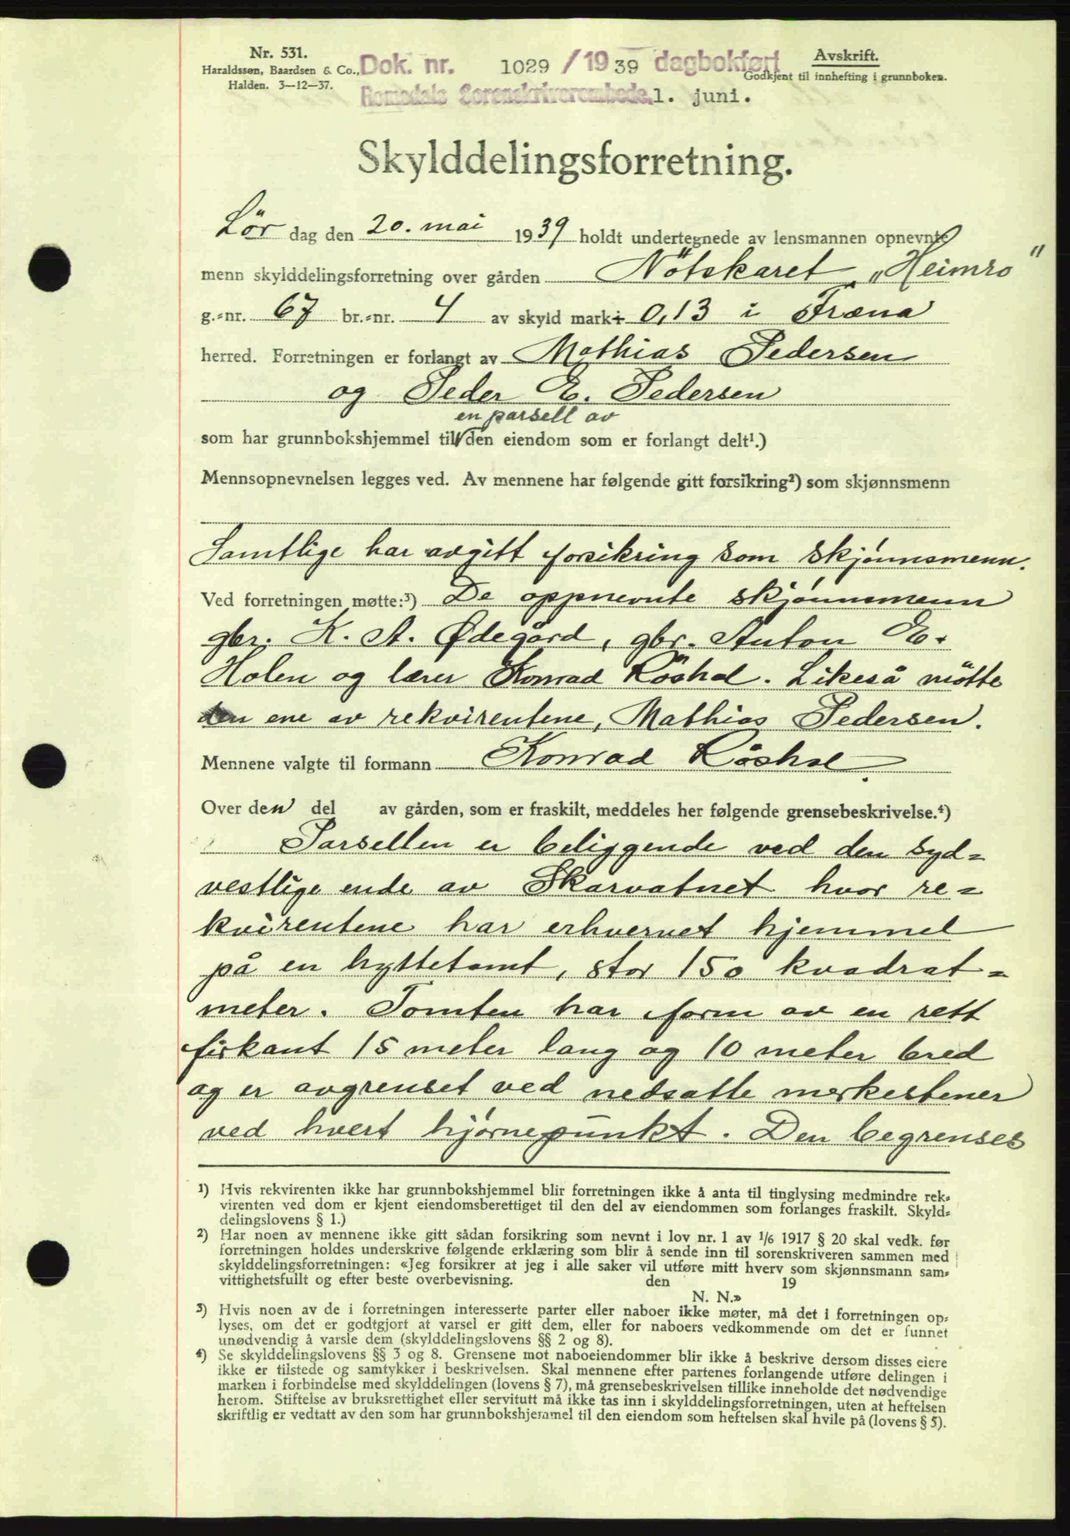 Nr. 531.
Haraldssen, Baardsen & Co.,
Halden. 3—12—37.
Dok. nr. 1029 / 19 39 dagbokført
Romsdals Sorenskriverembede, 1. juni.
Avskrift.
Godkjent til innhefting i grunnboken.
Skylddelingsforretning.
Lör dag den 20. mai 1939 holdt undertegnede av lensmannen opnevnte
menn skylddelingsforretning over gården Nötskaret „Heimro"
g.-nr. 67 br.-nr. 4 av skyld mark 0,13 i Fræna
herred. Forretningen er forlangt av Mathias Pedersen
og Peder E. Pedersen
en parsell av
som har grunnbokshjemmel til den eiendom som er forlangt delt¹.)
Mennsopnevnelsen legges ved. Av mennene har følgende gitt forsikring²) som skjønnsmenn
Samtlige har avgitt forsikring som skjónnsmenn.
Ved forretningen møtte:³) De oppnevnte skjónnsmenn
gbr. K. A. Ødegård, gbr. Anton E.
Holen og lærer Konrad Röshol. Likeså mötte
den ene av rekvirentene, Mathias Pedersen.
Mennene valgte til formann Konrad Röshol.
Over den del av gården, som er fraskilt, meddeles her følgende grensebeskrivelse.⁴)
Parsellen er beliggende ved den syd=
vestlige ende av Skarvatnet hvor re=
kvirentene har erhvervet hjemmel
på en hyttetomt, stor 150 kvadrat=
meter. Tomten har form av en rett
firkant 15 meter lang og 10 meter bred
og er avgrenset ved nedsatte merkestener
ved hvert hjórnepunkt. Den begrenses
¹) Hvis rekvirenten ikke har grunnbokshjemmel blir forretningen ikke å anta til tinglysing medmindre rek-
virenten ved dom er kjent eiendomsberettiget til den del av eiendommen som forlanges fraskilt. Skyld-
delingslovens § 1.)
²) Har noen av mennene ikke gitt sådan forsikring som nevnt i lov nr. 1 av 1/6 1917 § 20 skal vedk. før
forretningen holdes underskrive følgende erklæring som blir å sende inn til sorenskriveren sammen med
skylddelingsforretningen: «Jeg forsikrer at jeg i alle saker vil utføre mitt hverv som skjønnsmann sam-
vittighetsfullt og efter beste overbevisning. den 19
N. N.»
³) Hvis noen av de i forretningen interesserte parter eller naboer ikke møter, må det i forretningen op-
lyses, om det er godtgjort at varsel er gitt dem, eller for naboers vedkommende om det er funnet
unødvendig å varsle dem (skylddelingslovens §§ 2 og 8).
⁴) Se skylddelingslovens §§ 3 og 8. Grensene mot naboeiendommer blir ikke å beskrive dersom disses eiere
ikke er tilstede og samtykker i beskrivelsen. Skal mennene efter partenes forlangende utføre delingen i
marken i forbindelse med skylddelingen (lovens § 7), må grensebeskrivelsen tillike inneholde det nødvendige
herom. Stiftelse av bruksrettighet eller servitutt må ikke tas inn i skylddelingsforretningen, uten at heftelsen
skriftlig er vedtatt av den som har grunnbokshjemmel til den eiendom som heftelsen skal hvile på (lovens § 5).